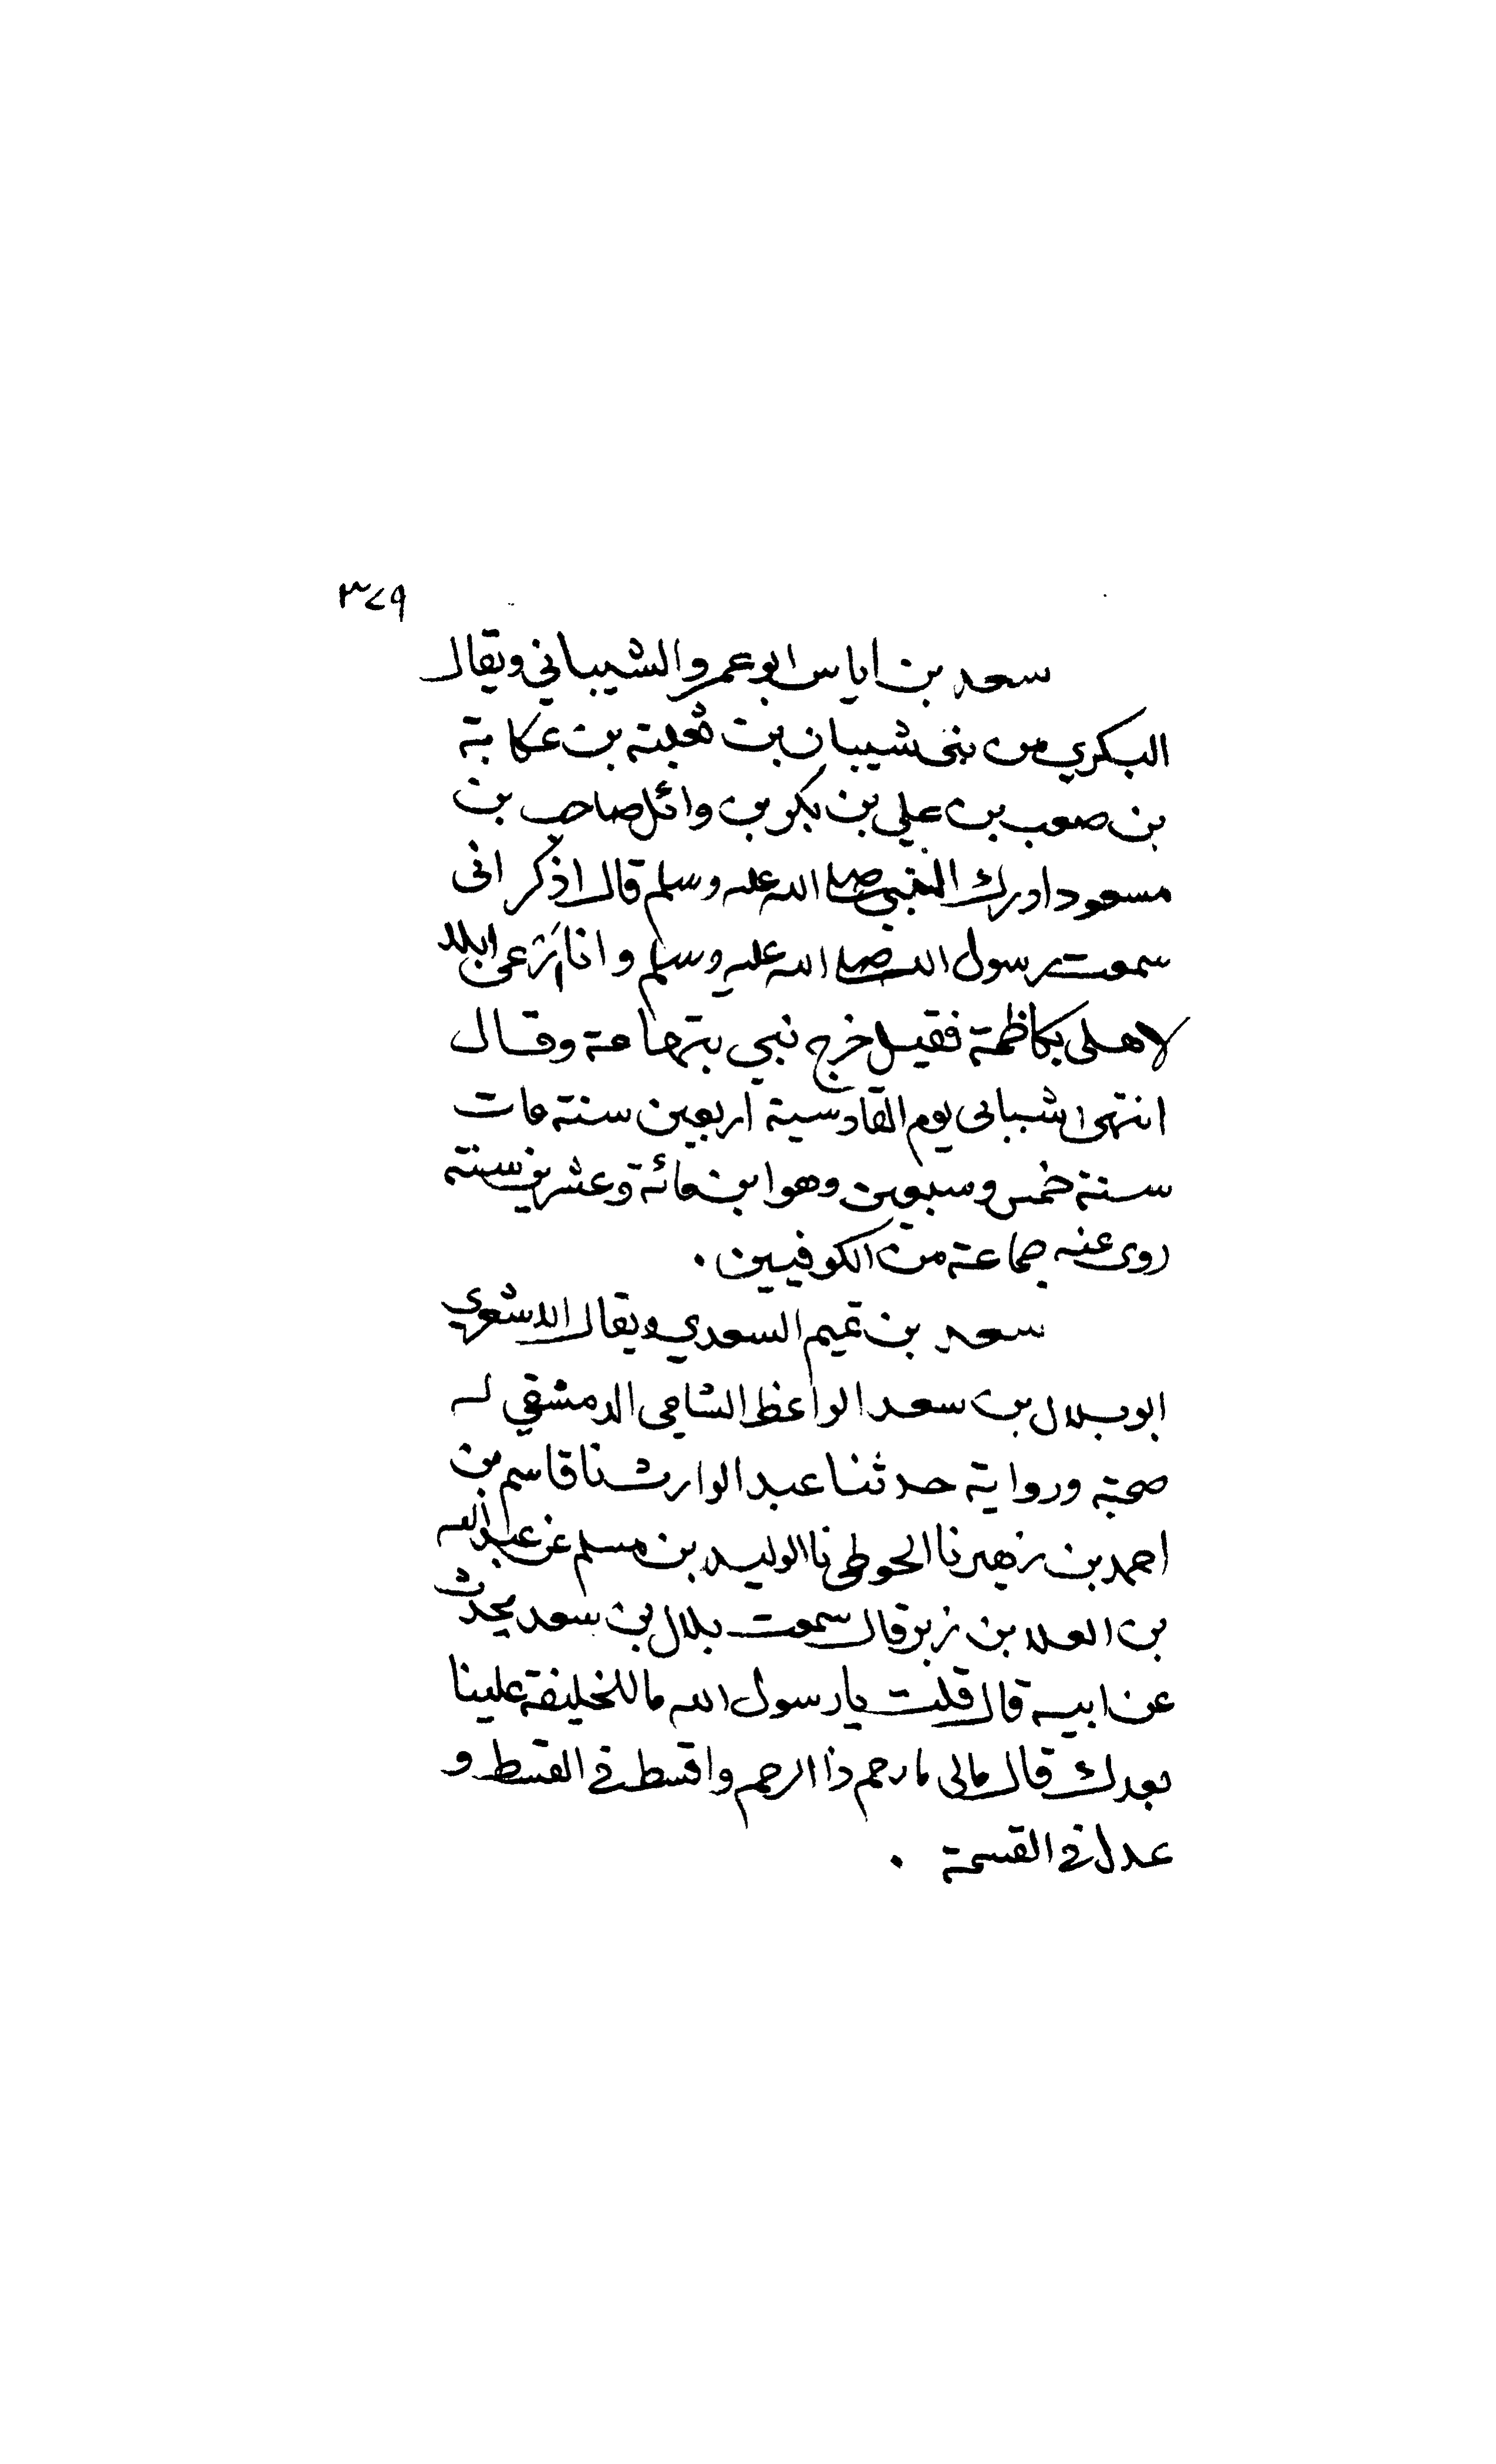 ٣٧٩
سعد بن اياس ابو عمرو الشيباني ويقال
البكري من بنى شيبان بن ثعلبة بن عكابة
بن صعب بن علي بن بكر بن وائل صاحب بن
مسعود ادرك النبي صلى الله عليه وسلم قال اذكر انى
سمعت رسول الله صلى الله عليه وسلم وانا ارعى ابلا
لاهلى بكاظمة فقيل خرج نبي بتهامة وقال
انتهى شبابى يوم القادسية اربعين سنة مات
سنة خمس وسبعين وهو ابن مائة وعشرين سنة
روى عنه جماعة من الكوفيين .
سعد بن تميم السعدي ويقال الاشعري
ابو بلال بن سعد الواعظ الشامى الدمشقي له
صحبة ورواية حدثنا عبد الوارث نا قاسم بن
احمد بن زهير نا الحوطى نا الوليد بن مسلم عن عبد الله
بن العلا بن زبر قال سمعت بلال بن سعد يحدث
عن ابيه قال قلت يا رسول الله ما للخليفة علينا
بعدك قال مالى ما رحم ذا الرحم واقسط في القسط و
عدل في القسمة .